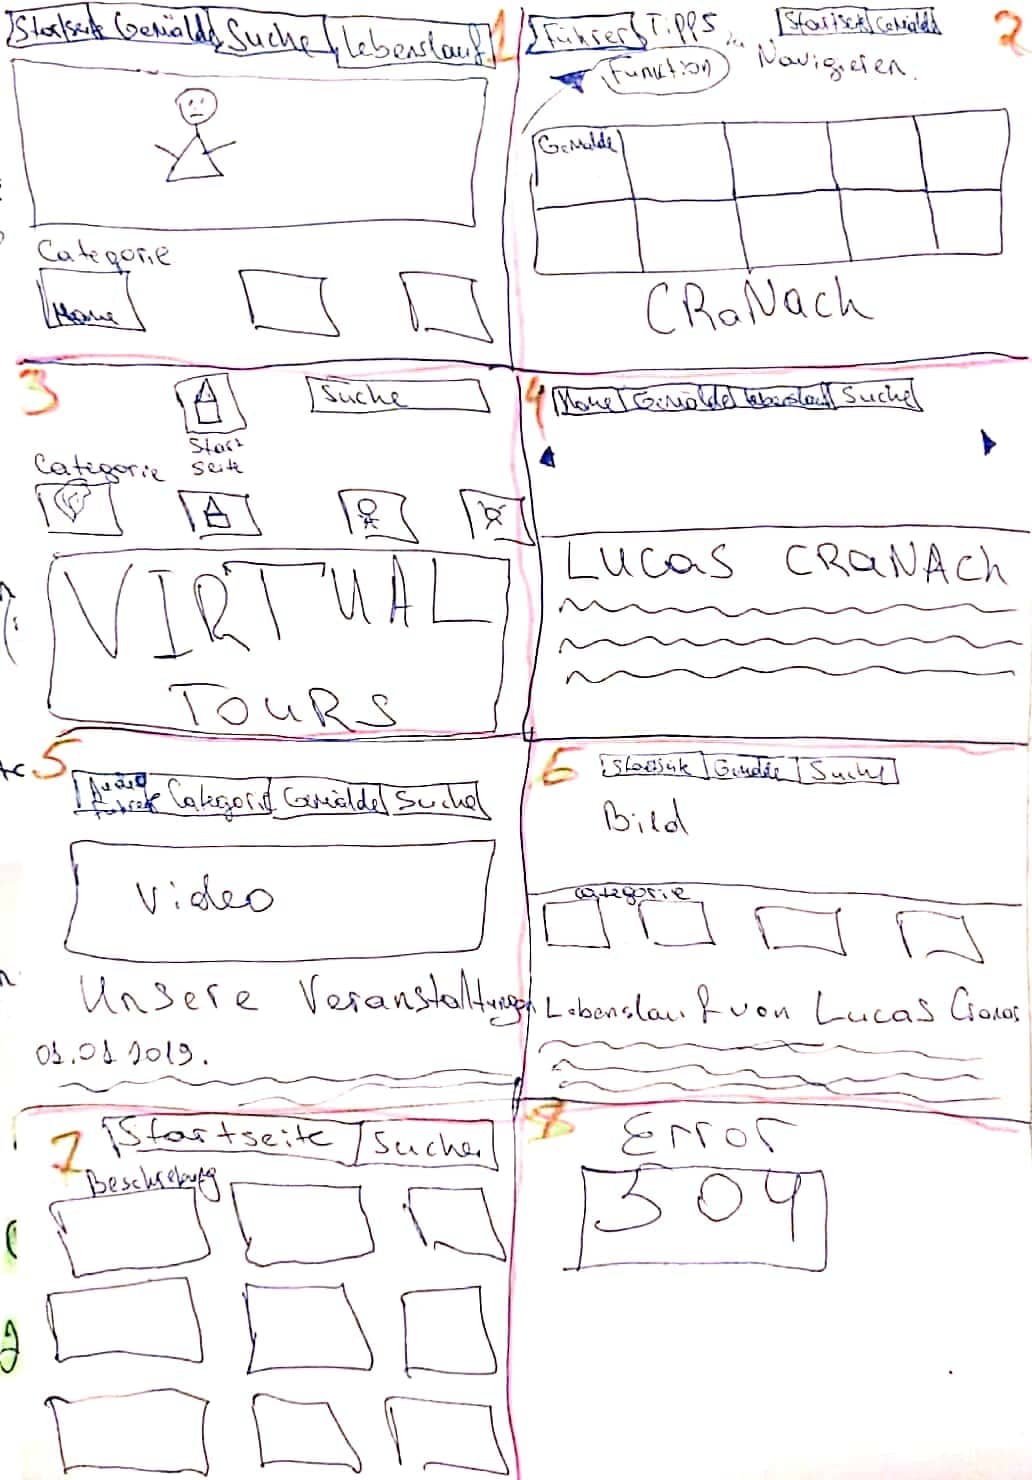 1
Startseite Gemälde Suche Lebenslauf
Categorie
Home
2
Führer Tipps Startseite Gemälde
zu Navigieren.
Funktion
Gemälde
CRaNach
3
Suche
Start
seite
Categorie
VIRTUAL
TOURS
4
Home Gemälde Lebenslauf Suche
LUCaS CRaNAch
5
Categorie Gemälde Suche
Video
Unsere Veranstaltungen
01.01.2019.
6
Startseite Gemälde Suche
Bild
categorie
Lebenslauf von Lucas
7
Startseite Suche
Beschreibung
8
Error
304